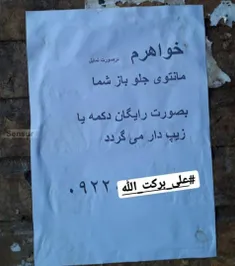 خواهرم درصورت تمایل
مانتوی جلو باز شما
بصورت رایگان دکمه یا
زیپ دار می گردد
۰۹۲۲
#علی_برکت_الله